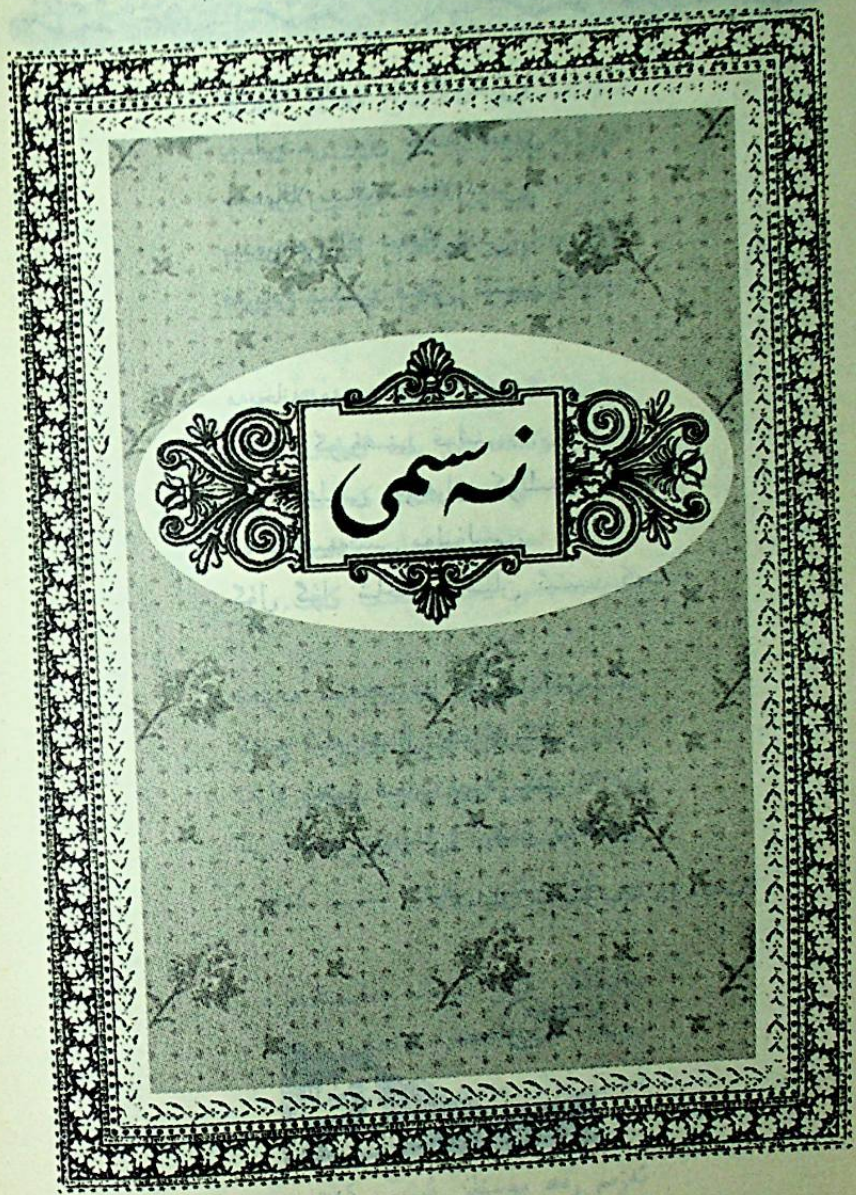 نەسمی